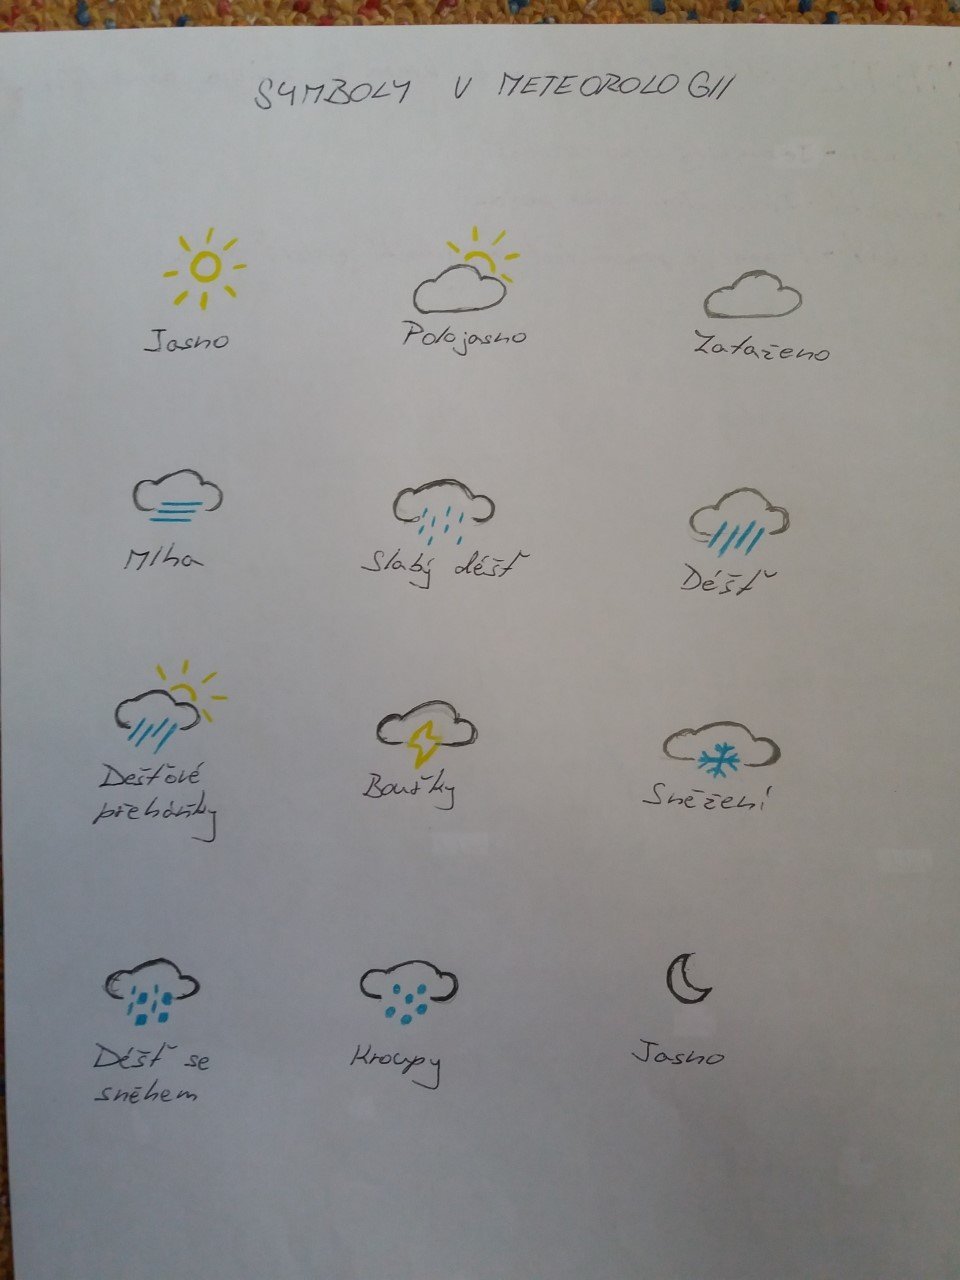 SYMBOLY V METEOROLOGII
Jasno
Polojasno
Zataženo
Mlha
Slabý déšť
Déšť
Dešťové
přeháňky
Bouřky
Sněžení
Déšť se
sněhem
Kroupy
Jasno